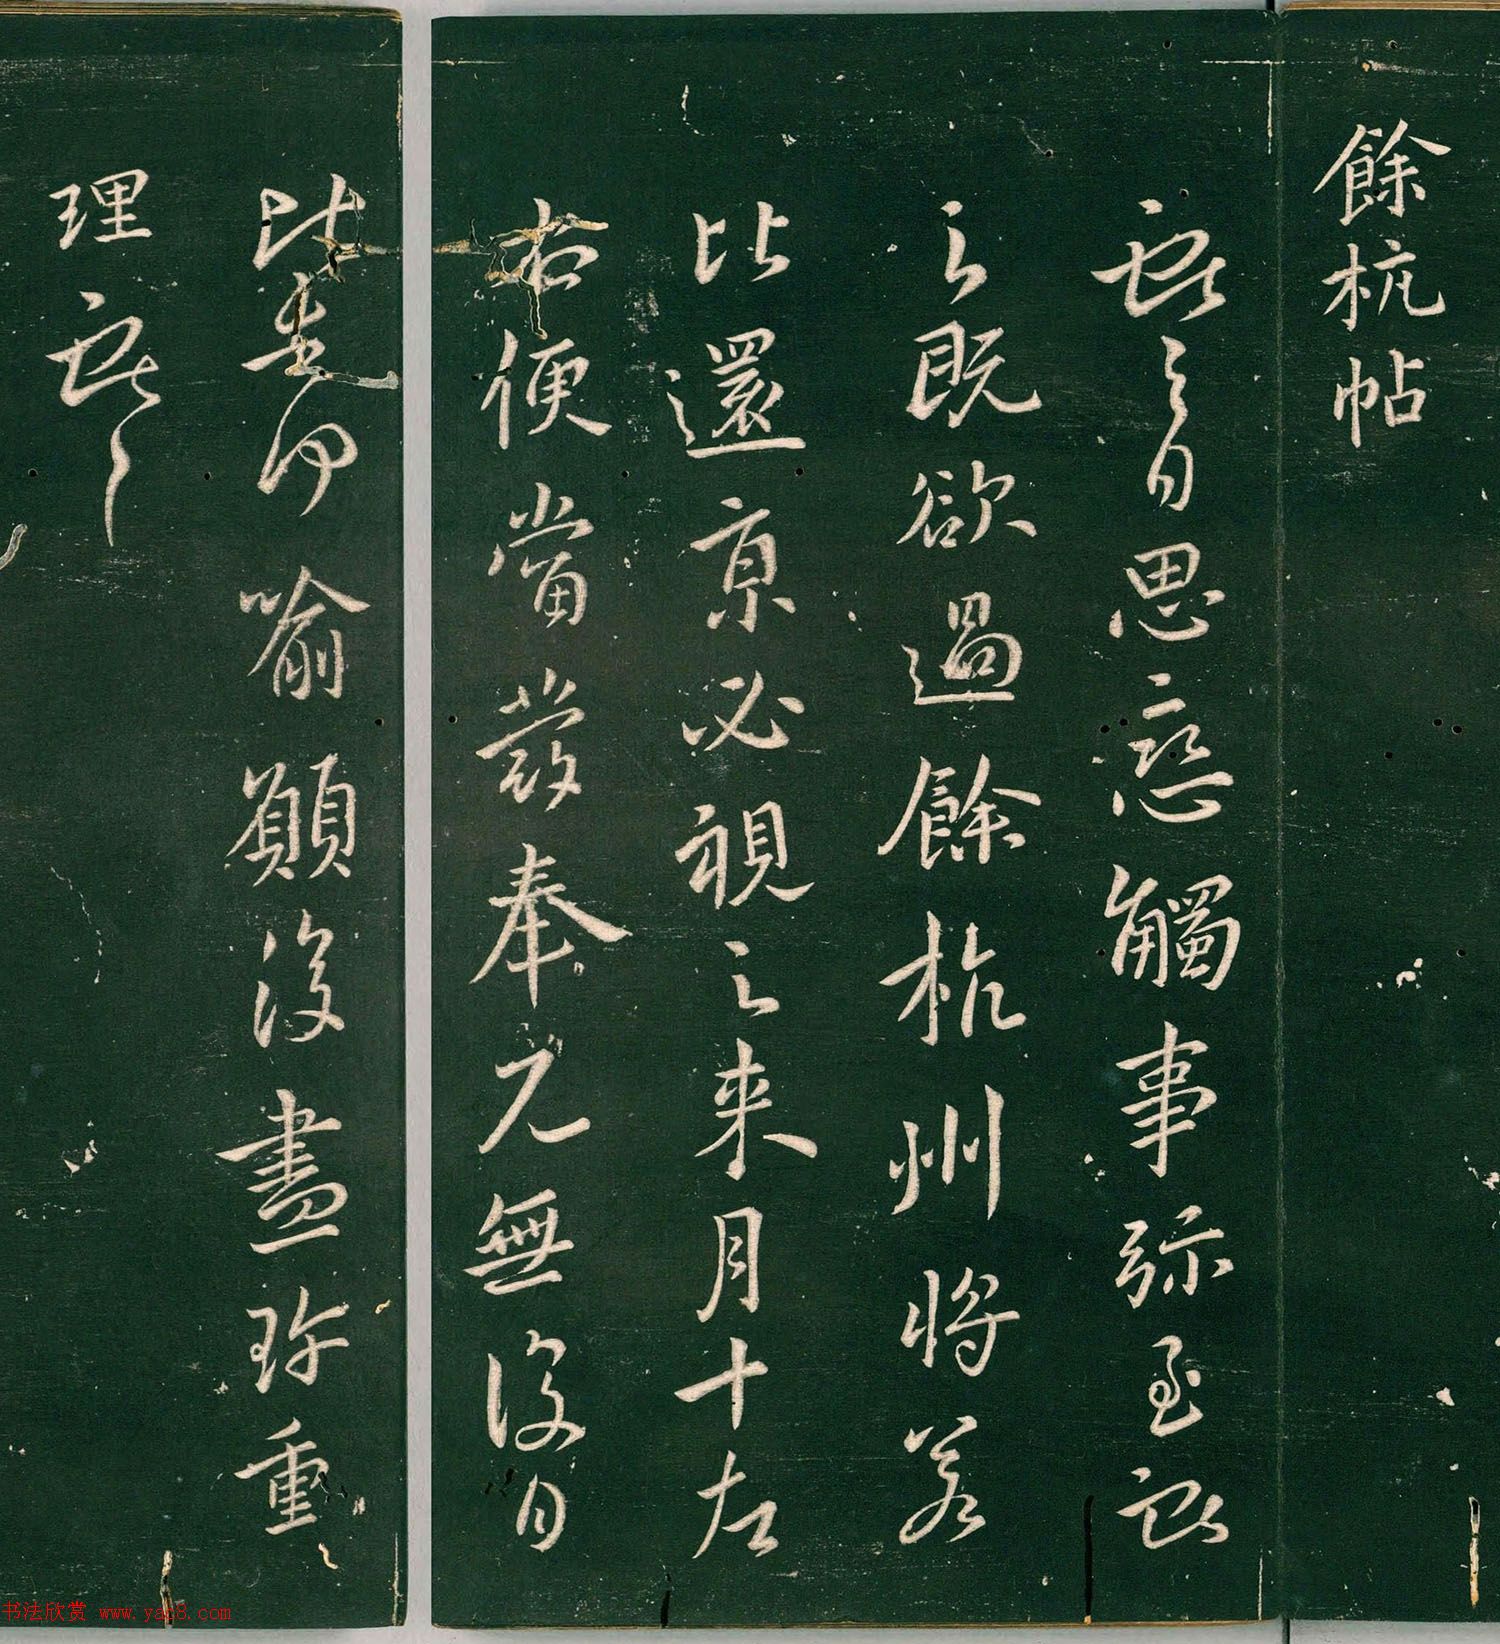 餘杭帖
獻之白思戀觸事彌至獻
之既欲過餘杭州將若
比還京必視之來月十左
右便當發奉見無復日
何喻願復盡珍重
理獻之
书法欣赏 www.yac8.com